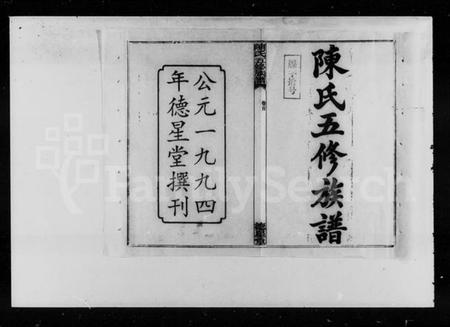 陳氏五修族譜
陳氏五修族譜
卷首
公元一九九四
年德星堂撰刊
FamilySearch